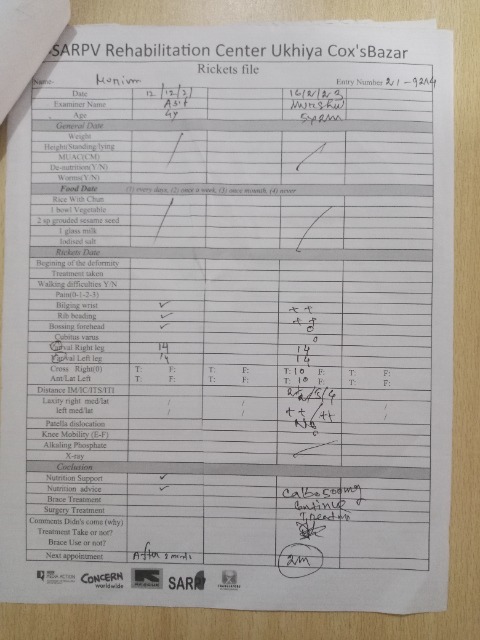 SARPV Rehabilitation Center Ukhiya Cox'sBazar
Rickets file
Name- Munium Entry Number 21-9214
Date 12/12/21 16/2/23
Examiner Name Asit
Age 4y 5y2m
General Date
Weight
Height(Standing/lying
MUAC(CM)
De-nutrition(Y/N)
Worms(Y/N)
Food Date (1) every days, (2) once a week, (3) once mounth, (4) never
Rice With Chun
1 bowl Vegetable
2 sp grouded sesame seed
1 glass milk
Iodised salt
Rickets Date
Begining of the deformity
Treatment taken
Walking difficulties Y/N
Pain(0-1-2-3)
Bilging wrist ✓ ++
Rib beading ✓ ++
Bossing forehead ✓ 0
Cubitus varus 0
Right leg 14 14
Left leg 14 14
Cross Right(0) T: F: T: F: T: 10 F: T: F:
Ant/Lat Left T: F: T: F: T: 10 F: T: F:
Distance IM/IC/ITS/ITI
Luxity right med/lat / / /
left med/lat / ++/++ /
Patella dislocation No
Knee Mobility (E-F) 0
Alkaling Phosphate
X-ray
Coclusion
Nutrition Support ✓
Nutrition advice ✓ Calbo 500mg
Brace Treatment Continue
Surgery Treatment Treatm
Comments Didn's come (why)
Treatment Take or not?
Brace Use or not?
Next appointment After 2 month 2m
CONCERN
worldwide
SARPV